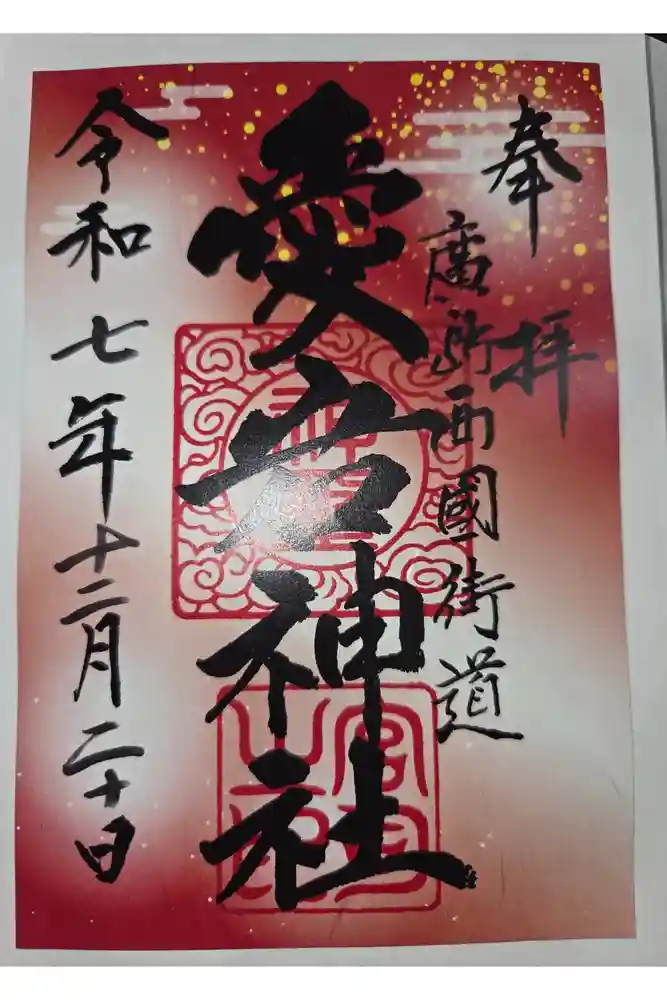 奉拝
廣島西國街道
愛宕神社
令和七年十二月二十日